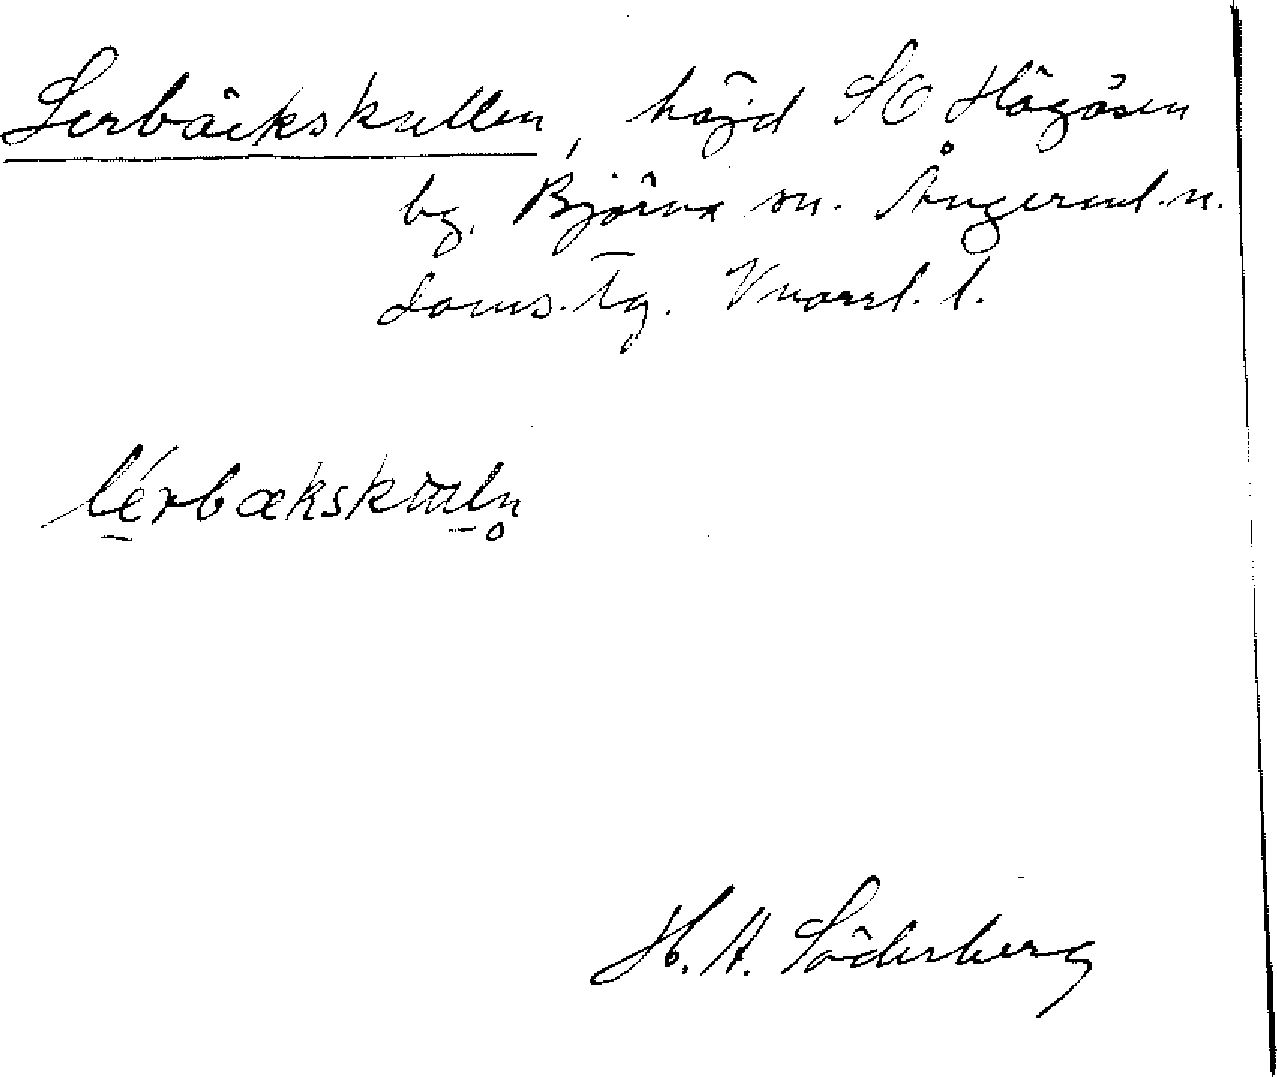 Lerbäckskullen, höjd SO Högåsen
bg. Björna sn. Ångerml. n.
doms. tg. Vnorrl. l.
lérbækskɯln̥
H. A. Söderberg